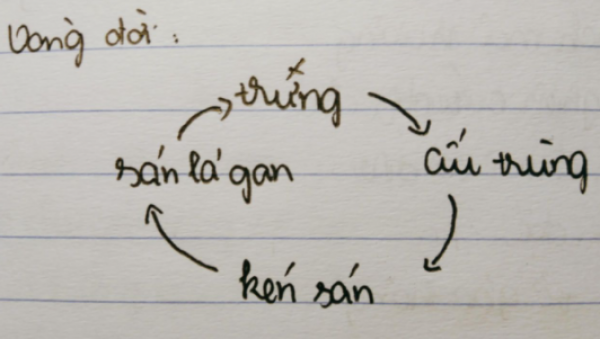 Vòng đời:
trứng
sán lá gan
ấu trùng
kén sán